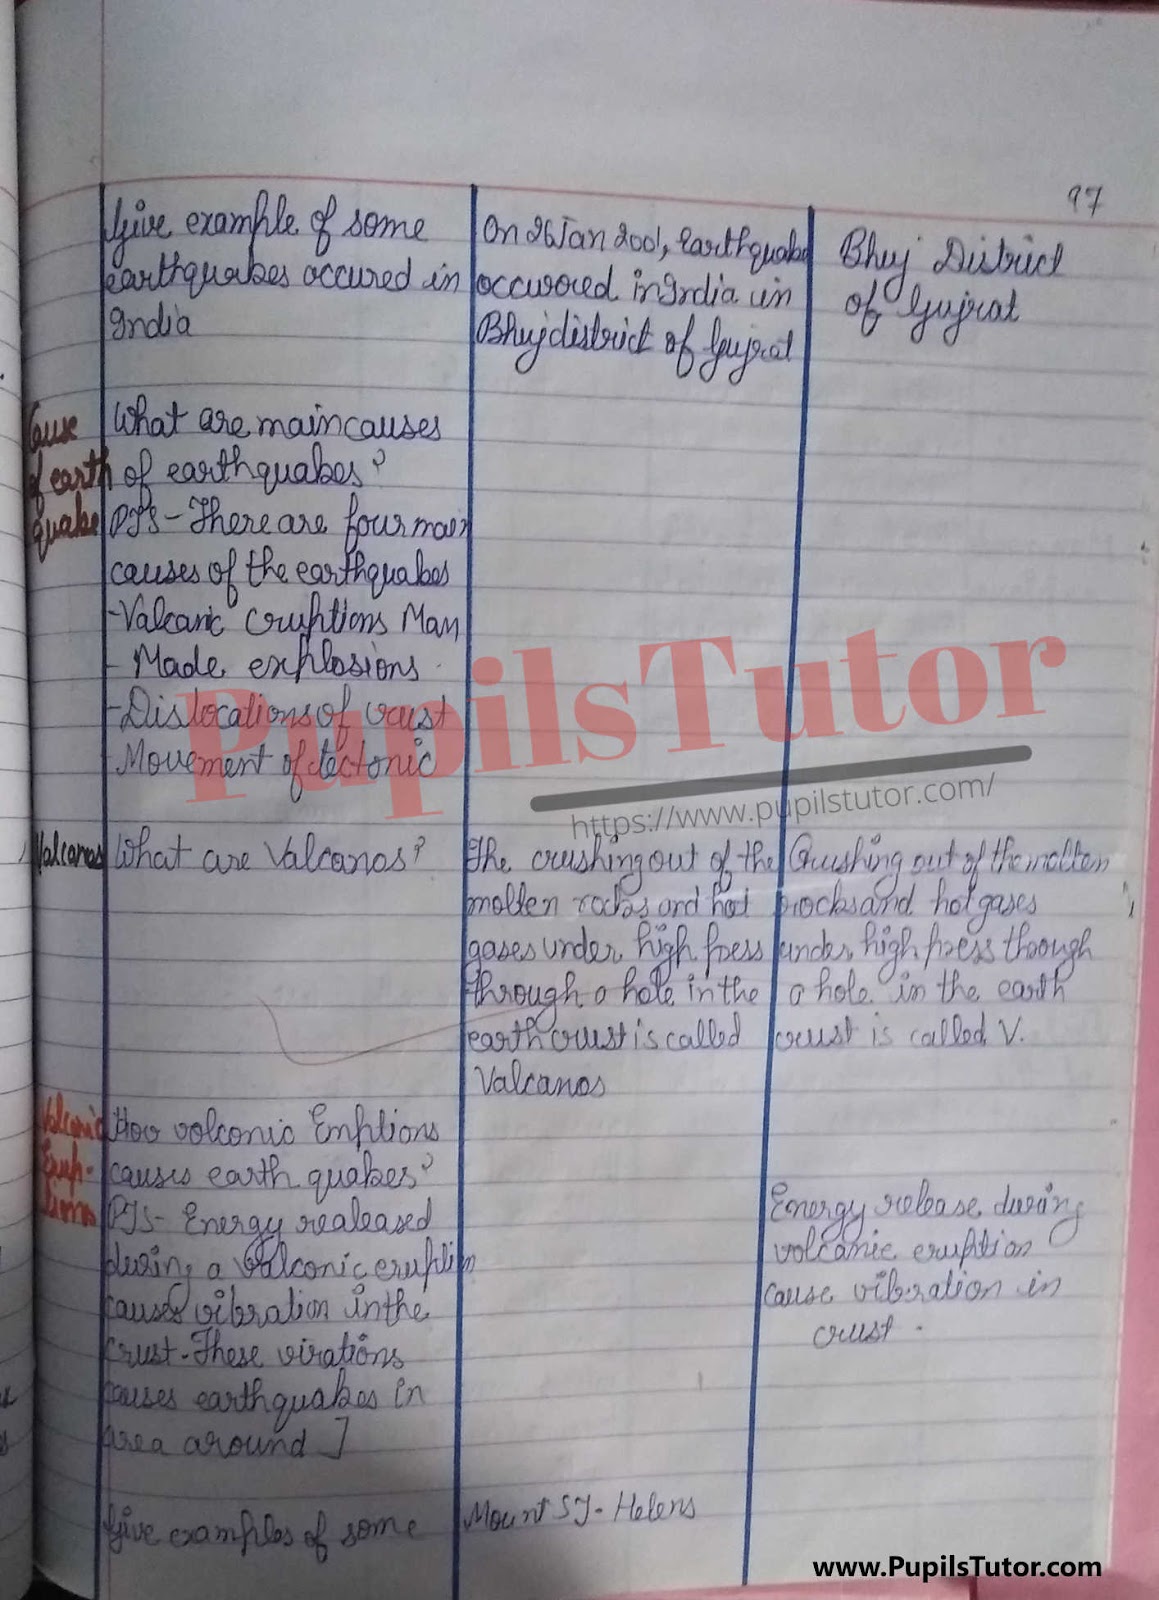 97
Give example of some
earthquakes occured in
India
On 26 Jan 2001, Earthquake
occurred in India in
Bhuj district of Gujrat
Bhuj District
of Gujrat
Cause
of earth
quake
What are main causes
of earthquakes?
PTS - There are four main
causes of the earthquakes
- Valcanic eruptions Man
- Made explosions.
- Dislocations of crust
- Movement of tectonic
PupilsTutor
https://www.pupilstutor.com/
Valcanos
What are Valcanos?
The crushing out of the
molten rocks and hot
gases under high press
through a hole in the
earth crust is called
Valcanos
Crushing out of the molten
rocks and hot gases
under high press through
a hole in the earth
crust is called V.
Valcanic
Erup-
tions
How volconic Emptions
causes earth quakes?
PTS - Energy realeased
during a Valconic eruption
causes vibration in the
crust - These virations
causes earthquakes in
area around ]
Energy release during
volcanic eruption
cause vibration in
crust.
Give examples of some
Mount ST- Helens
www.PupilsTutor.com